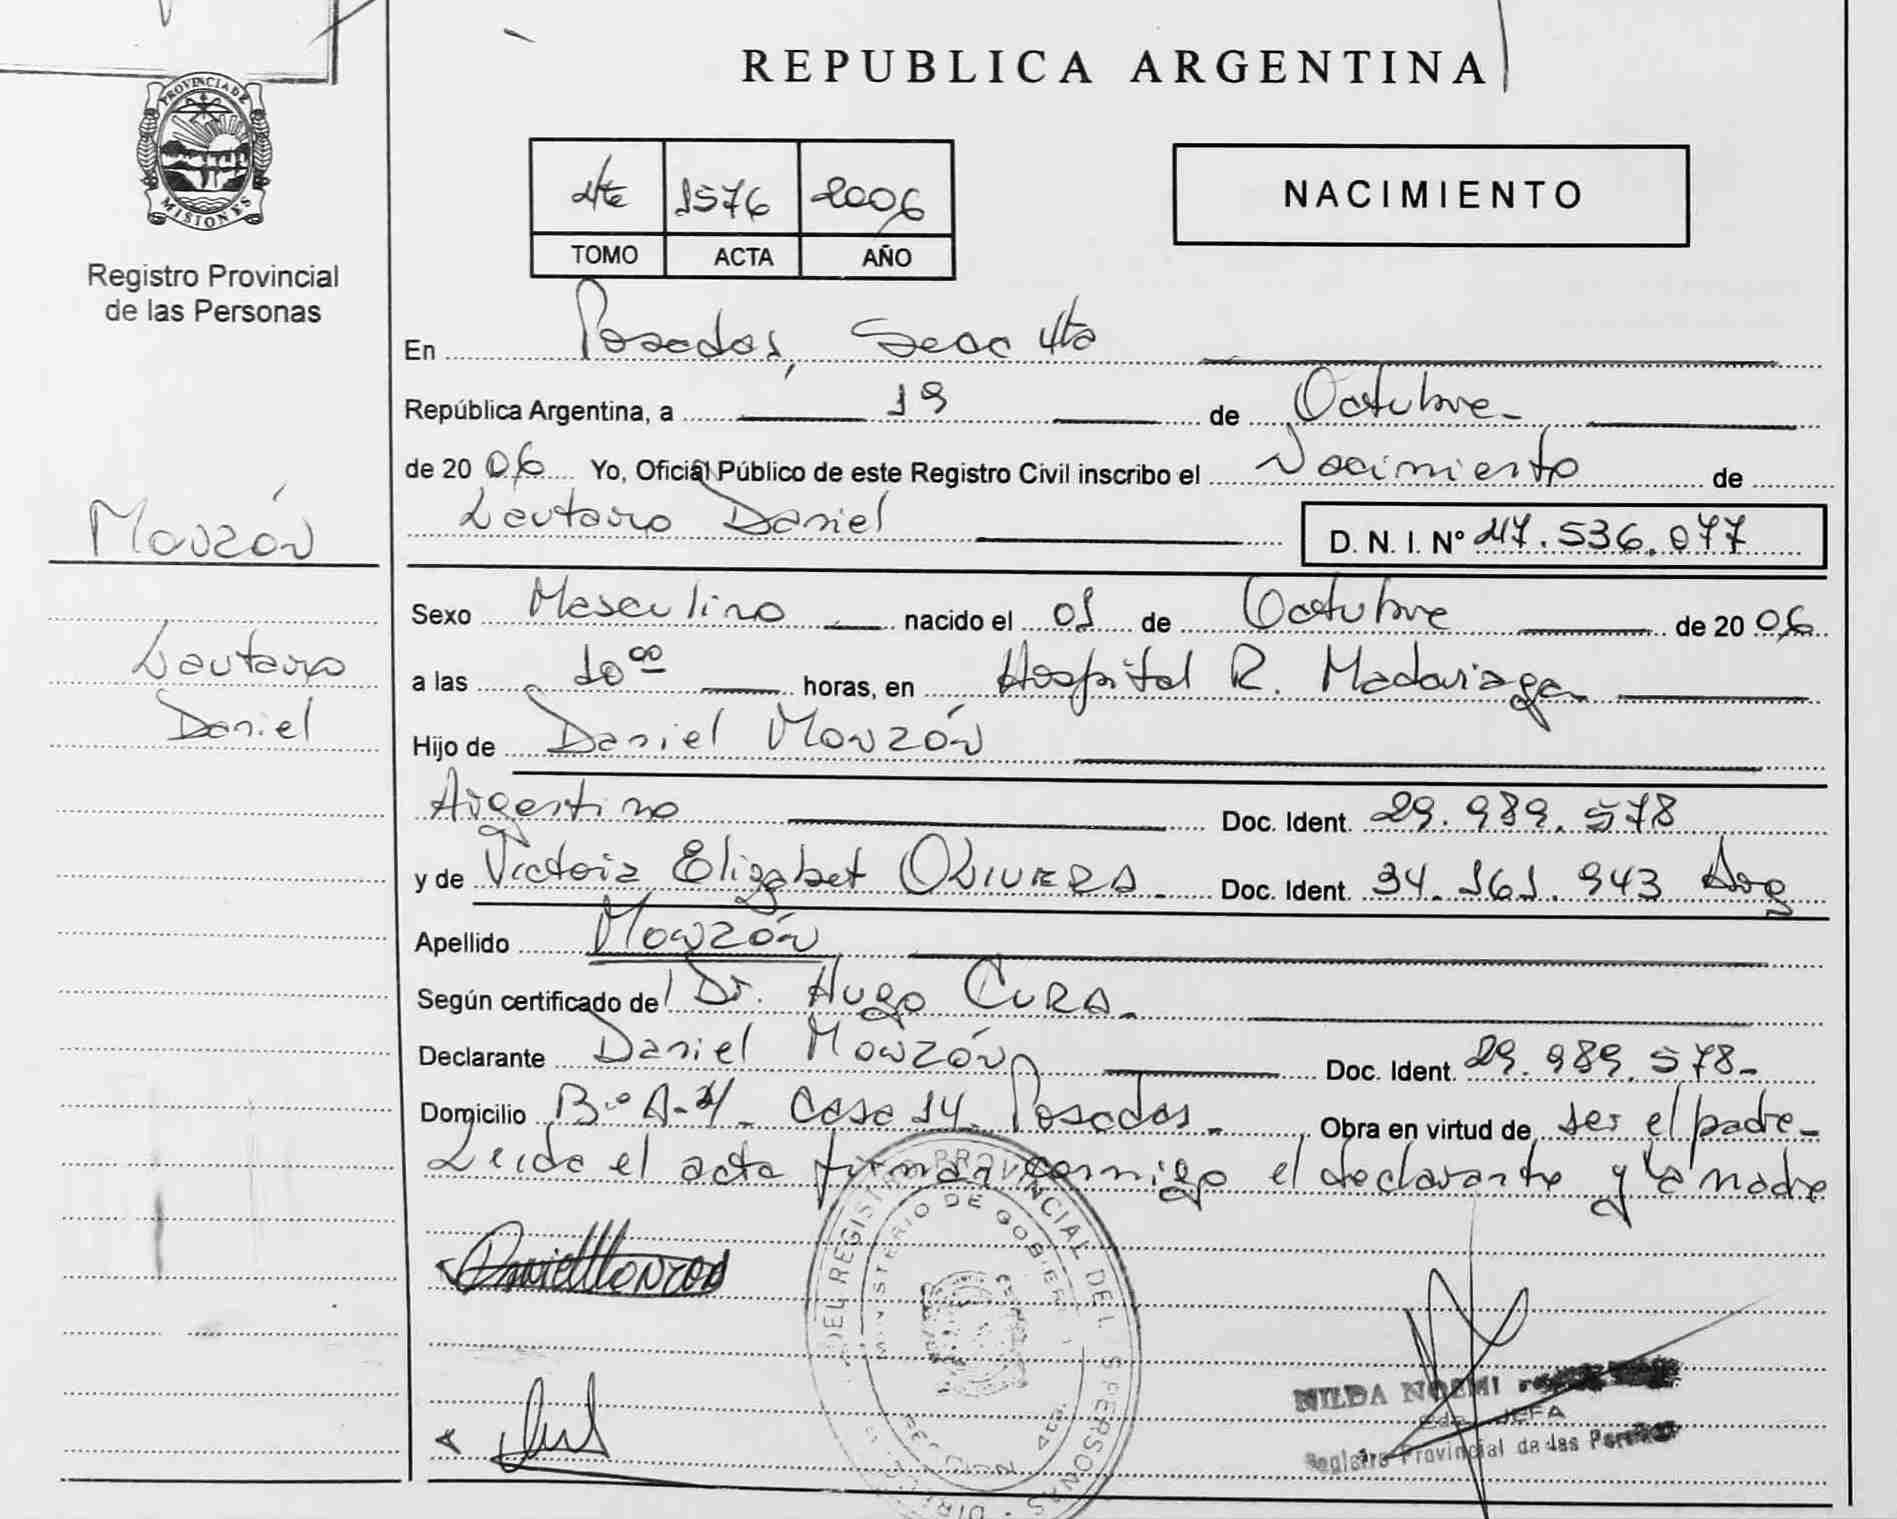 REPUBLICA ARGENTINA
PROVINCIA DE
MISIONES
Registro Provincial
de las Personas
4to 1576 2006
TOMO ACTA AÑO
NACIMIENTO
En Posadas, Secc 4ta
República Argentina, a 19 de Octubre
de 20 06 Yo, Oficial Público de este Registro Civil inscribo el Nacimiento de
Lautaro Daniel D. N. I. N° 47.536.077
Monzón
Lautaro
Daniel
Sexo Masculino nacido el 01 de Octubre de 20 06
a las 10 00 horas, en Hospital R. Madariaga
Hijo de Daniel Monzón
Argentino Doc. Ident. 29.989.578
y de Victoria Elizabet OLIVERA Doc. Ident. 34.161.943 Arg
Apellido Monzón
Según certificado de Dr. Hugo CURA
Declarante Daniel Monzón Doc. Ident. 29.989.578
Domicilio B° A-4 Casa 14 Posadas Obra en virtud de ser el padre
Leida el acta firman conmigo el declarante y la madre
Daniel Monzon
DEL REGISTRO PROVINCIAL DE PERSONAS
MINISTERIO DE GOBIER
NILDA NOEMI
JEFA
Registro Provincial de las Personas